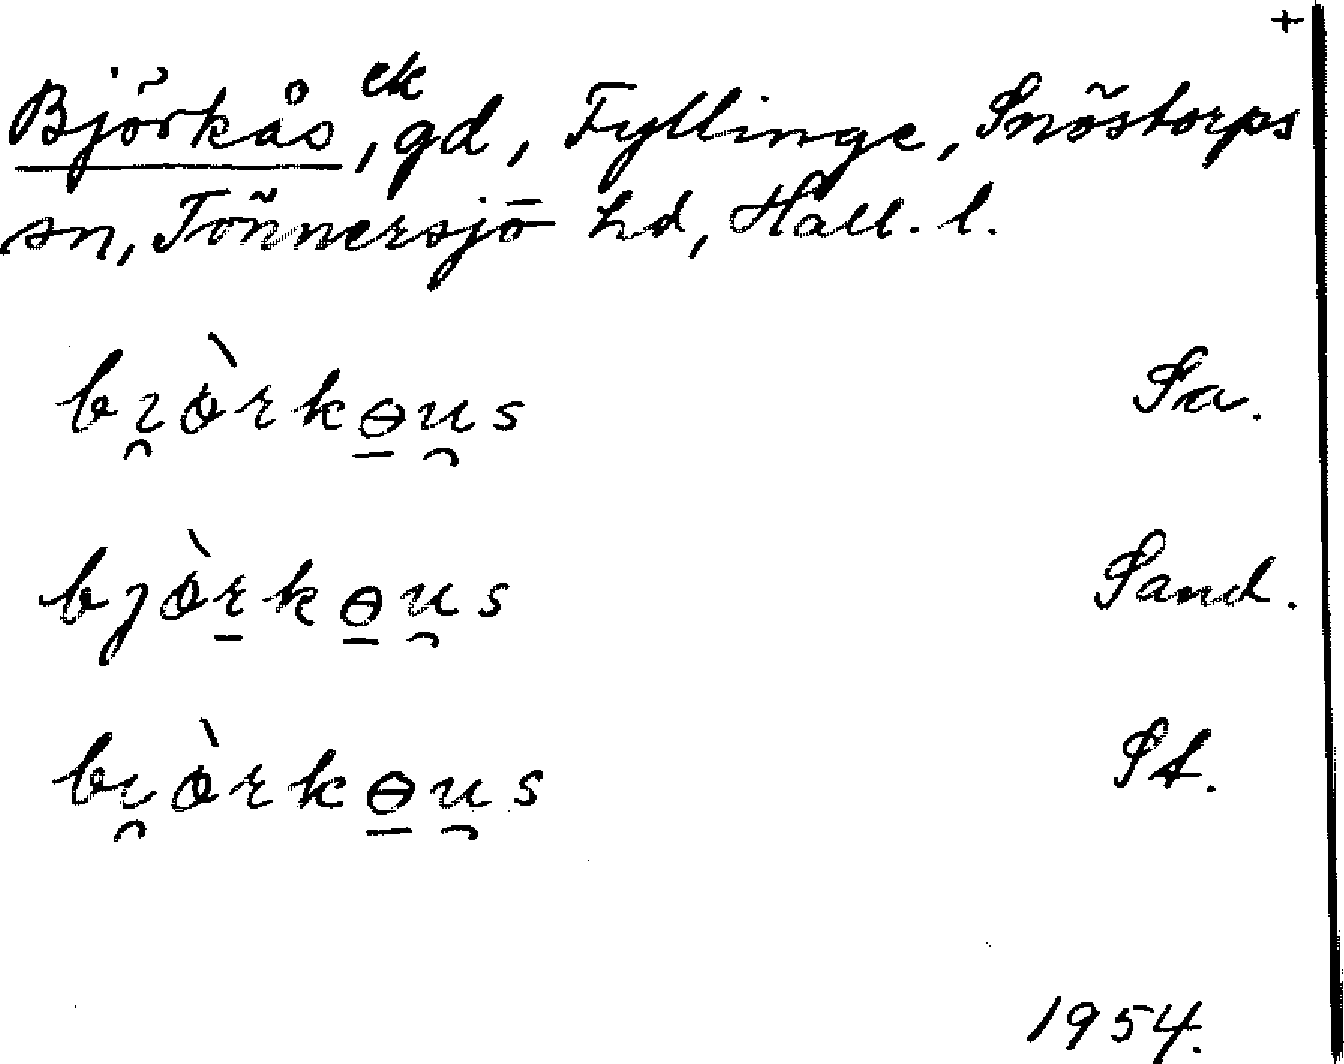 +
Björkås, ek gd, Fyllinge, Snöstorps
sn, Tönnersjö hd, Hall. l.
bı̯ò̵rkɵ̠u̯s Sa.
bjò̵r̠kɵ̠u̯s Sand.
bı̯ò̵rkɵ̠u̯s St.
1954.